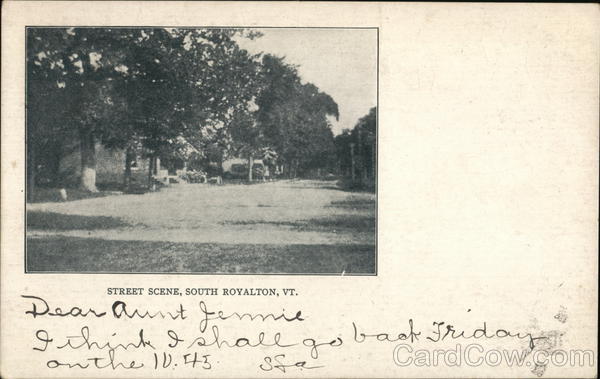 STREET SCENE, SOUTH ROYALTON, VT.
Dear Aunt Jennie
I think I shall go back Friday
on the 10.45
CardCow.com